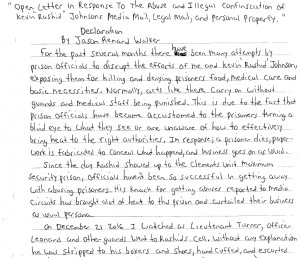 "Open Letter In Response To The Abuse and Illegal Confinscation of
Kevin Rashid Johnsons Media Mail, Legal Mail, and Personal Property."
Declaration
By Jason Renard Walker
For the past several months there have been many attempts by
prison officials to disrupt the efforts of me and Kevin Rashid Johnson,
exposing them for killing and denying prisoners food, medical care and
basic necessities. Normally, acts like these carry on without
guards and medical staff being punished. This is due to the fact that
prison officials have become accustomed to the prisoners turning a
blind eye to what they see or are unaware of how to effectively
bring heat to the right authorities. In response, a prisoner dies, paper-
work is fabricated to conceal what happend, and business goes on as usual.
Since the day Rashid showed up to the Clements Unit maximum
security prison, officials haven't been so successful in getting away
with abusing prisoners. His knack for getting abuses reported to media
circuits has brought alot of heat to this prison and curtailed their business
as usual persona.
On December 21 2016 I watched as Lieutenant Turner, officer
Leonard and other guards went to Rashids cell. Without any explanation
he was stripped to his boxers and shoes, hand cuffed, and escorted